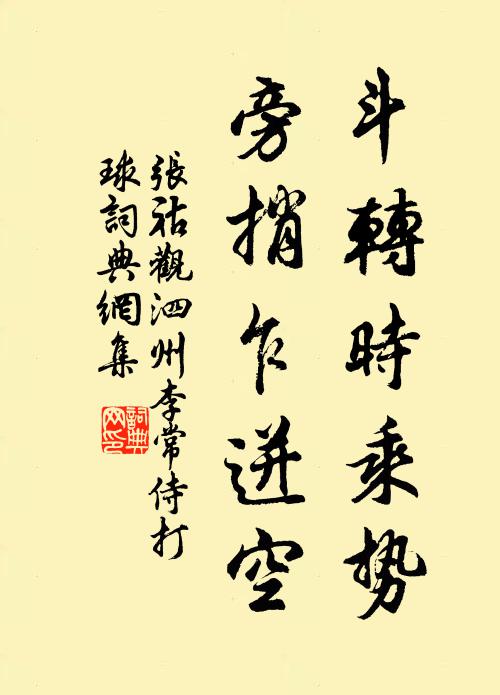 斗轉時乘勢
旁捎乍迸空
張祜觀泗州李常侍打
球詞典網集
詞典网印